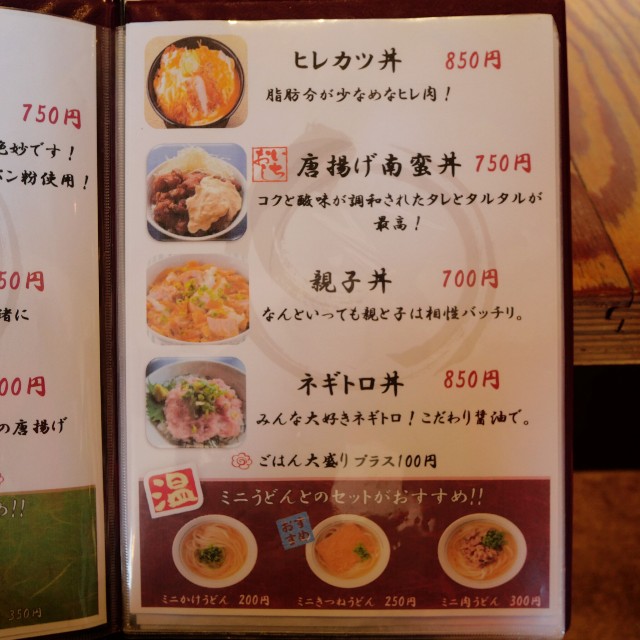 750円
絶妙です！
パン粉使用！
50円
緒に
00円
の唐揚げ
!!
350円
ヒレカツ丼 850円
脂肪分が少なめなヒレ肉！
いちおし
唐揚げ南蛮丼 750円
コクと酸味が調和されたタレとタルタルが
最高！
親子丼 700円
なんといっても親と子は相性バッチリ。
ネギトロ丼 850円
みんな大好きネギトロ！こだわり醤油で。
ごはん大盛りプラス100円
温
ミニうどんとのセットがおすすめ!!
おすすめ
ミニかけうどん 200円
ミニきつねうどん 250円
ミニ肉うどん 300円